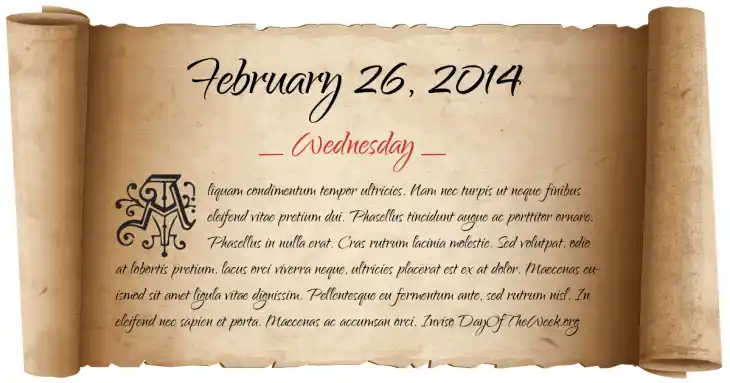 February 26, 2014
_ Wednesday _
Aliquam condimentum tempor ultricies. Nam nec turpis ut neque finibus
eleifend vitae pretium dui. Phasellus tincidunt augue ac porttitor ornare.
Phasellus in nulla erat. Cras rutrum lacinia molestie. Sed volutpat, odio
at lobortis pretium, lacus orci viverra neque, ultricies placerat est ex at dolor. Maecenas eu-
ismod sit amet ligula vitae dignissim. Pellentesque eu fermentum ante, sed rutrum nisl. In
eleifend nec sapien et porta. Maecenas ac accumsan orci. Inviso DayOfTheWeek.org